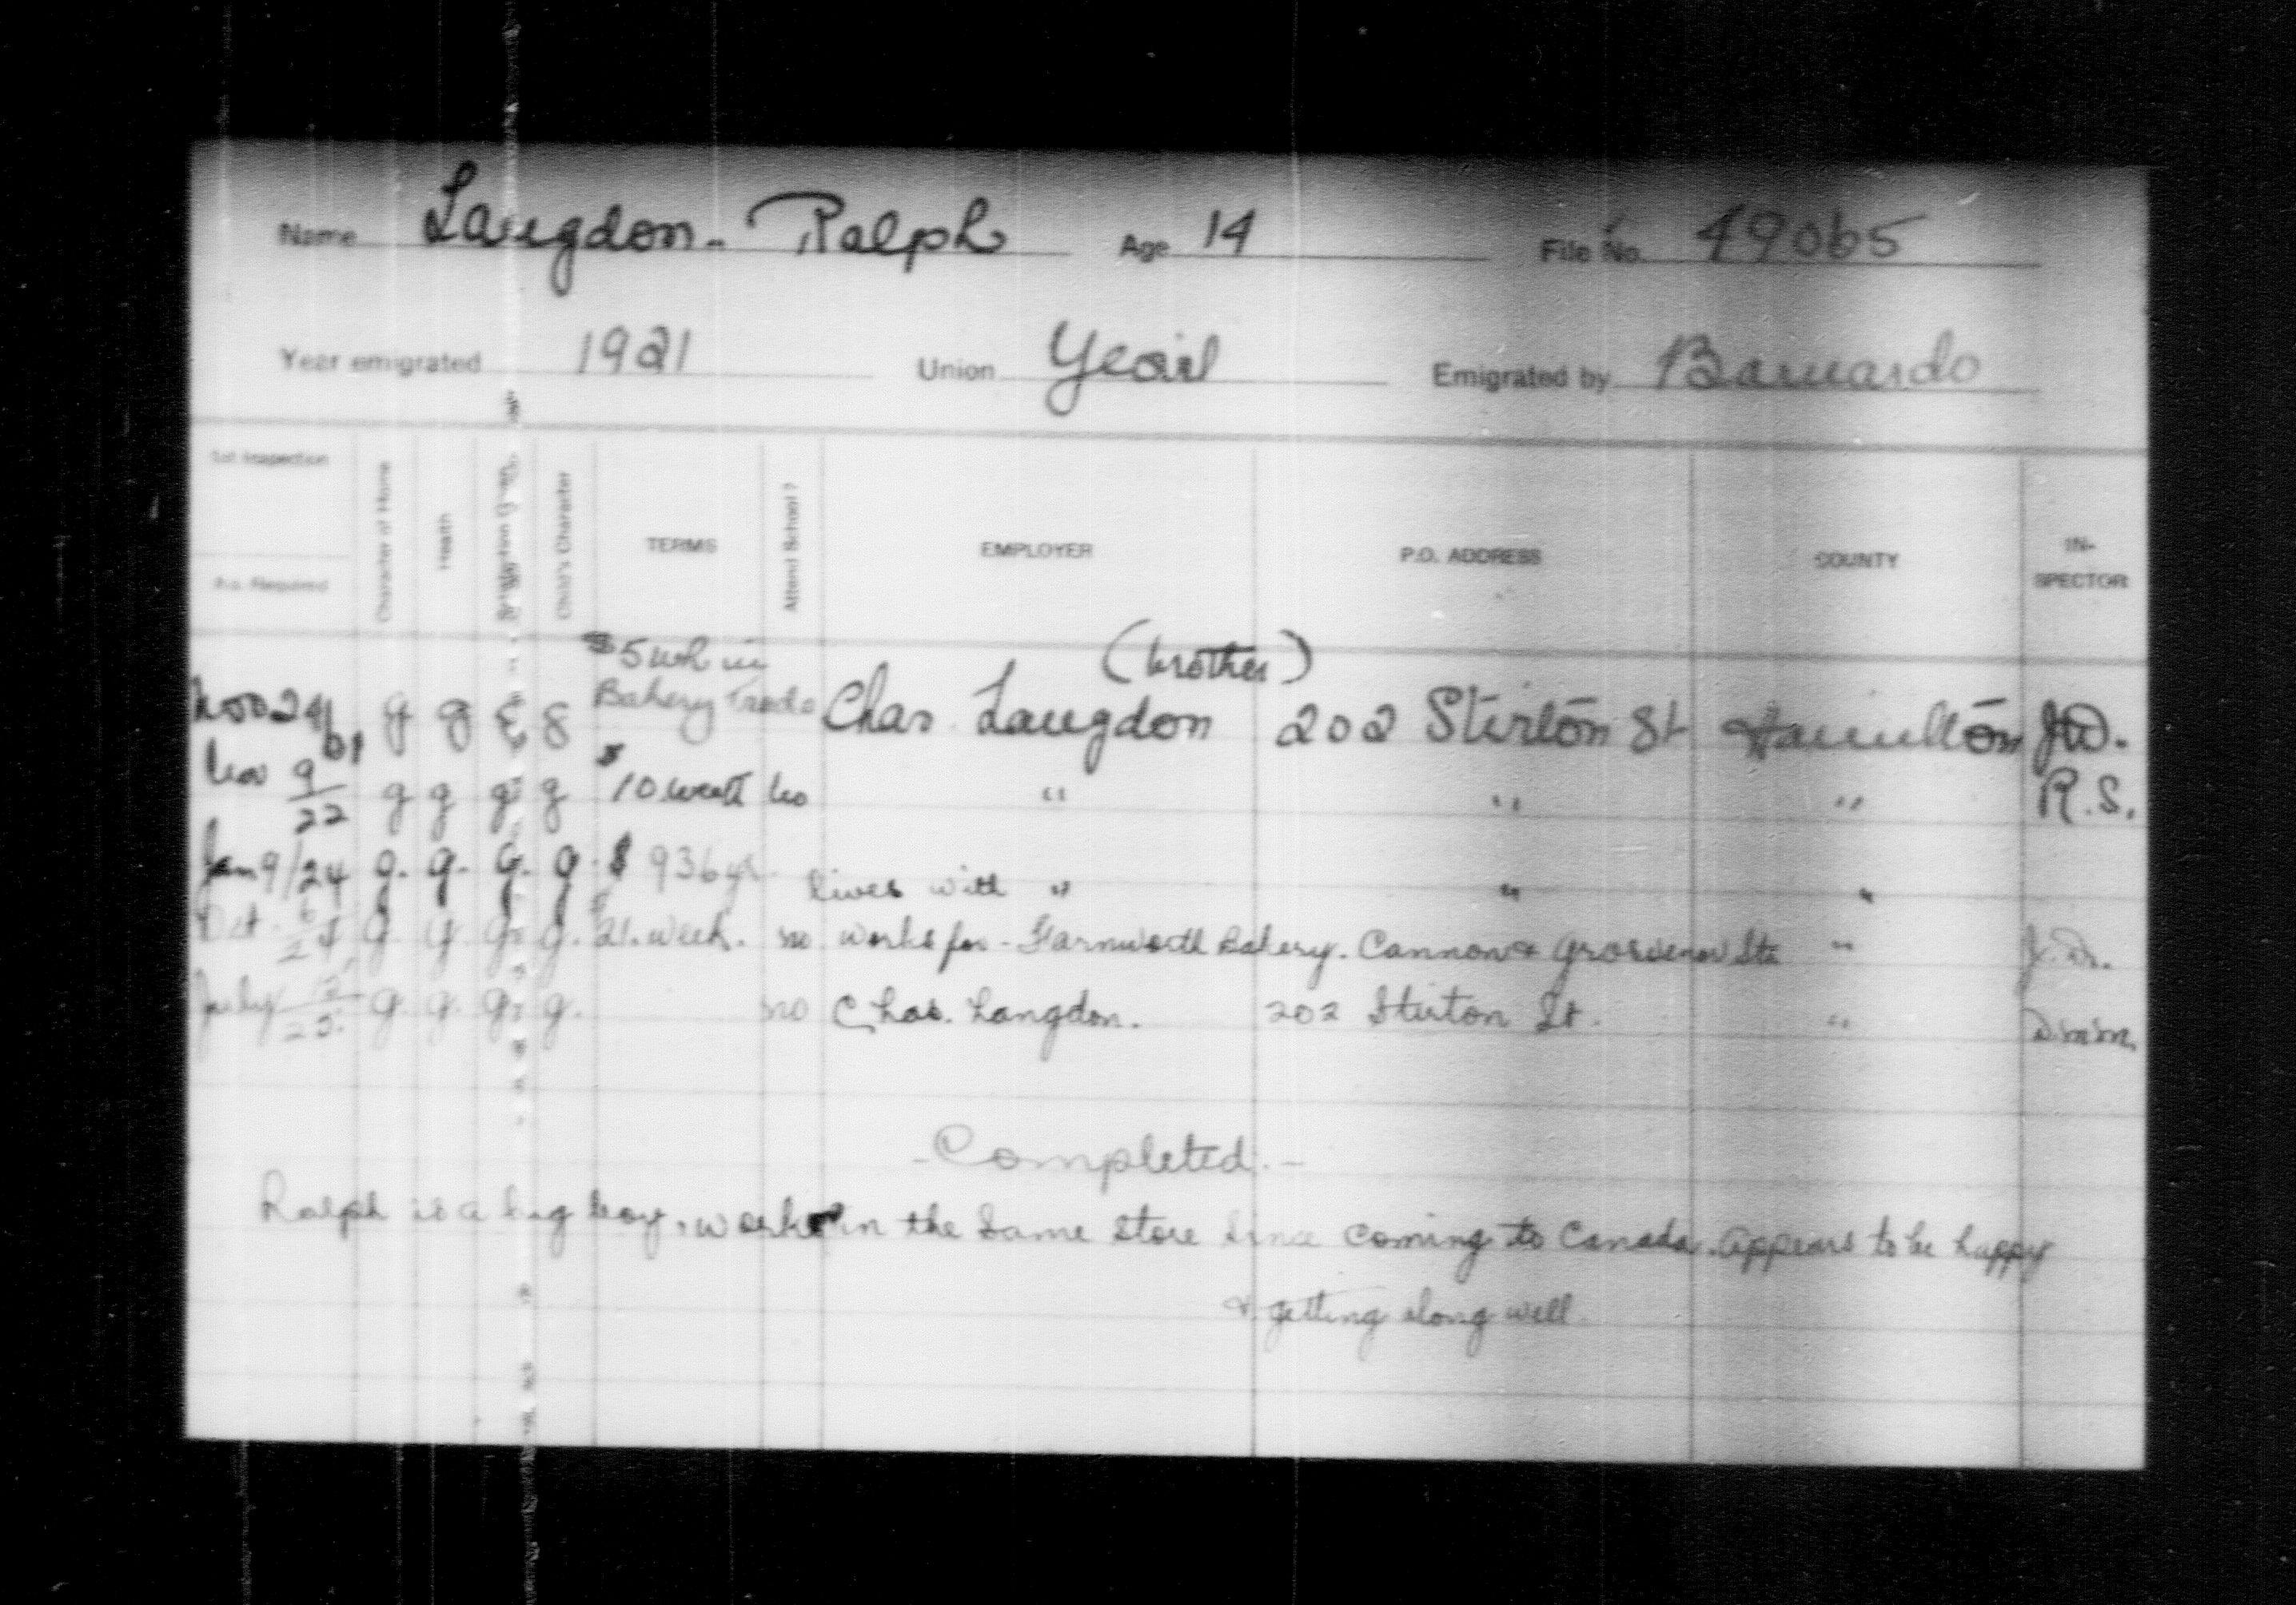 Name Langdon - Ralph Age 14 File No. 49065
Year emigrated 1921 Union Yeovil Emigrated by Barnardo
1st Inspection Character of Home Health Child's Character TERMS Attend School? EMPLOYER P.O. ADDRESS COUNTY IN-SPECTOR
P.o. Required
$5 wk in (brother)
Nov 24/21 g g g g Bakery Trade Chas Langdon 202 Stirton St Hamilton J.D.
Nov 9/22 g g g g $10 week no " " " R.S.
Jan 9/24 g. g. g. g. $936 yr. lives with " " "
Oct. 6/24 g. g. g. g. $21. week. no works for - Farnworth Bakery. Cannon & Grosvenor Sts " J.D.
July 13/25 g. g. g. g. no Chas. Langdon. 202 Stirton St. " D.M.M.
- Completed. -
Ralph is a big boy, works in the same store since coming to Canada. Appears to be happy
& getting along well.